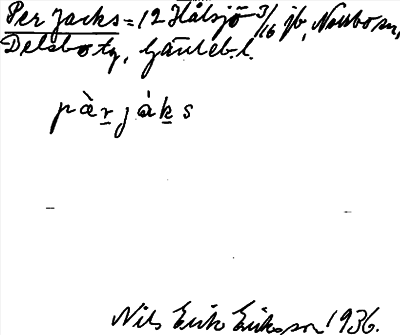 Per Jacks = 12 Hålsjö 3/16 jb, Norrbo sn,
Delsbo tg, Gävleb. l.
pàr̲jàk̲s
Nils Erik Eriksson 1936.